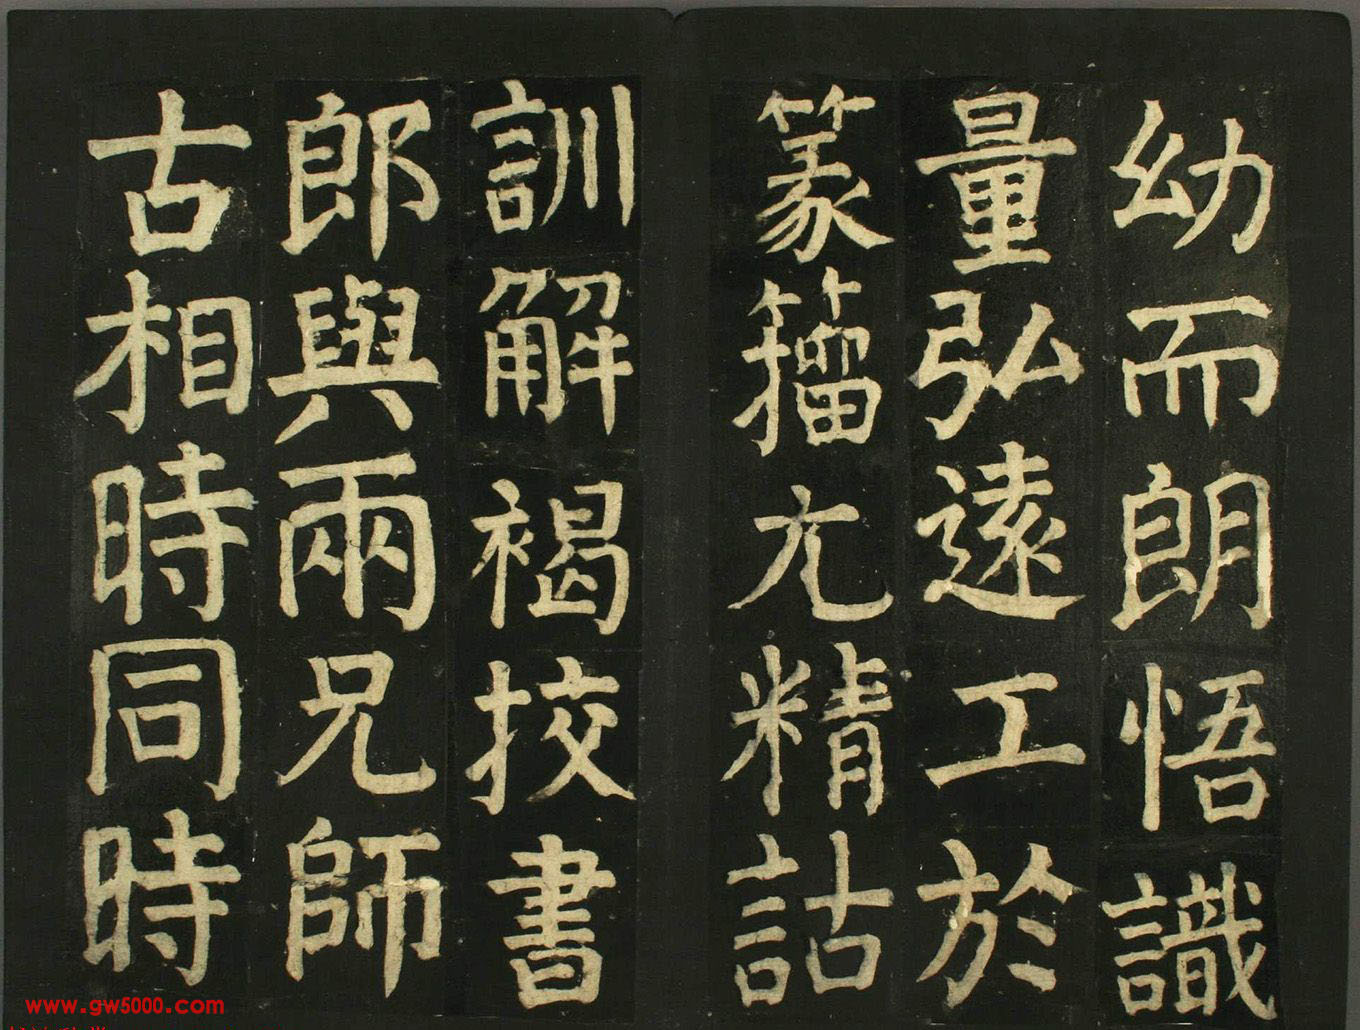 幼而朗悟識
量弘遠工於
篆籀尤精詁
訓解褐挍書
郎與兩兄師
古相時同時
www.gw5000.com